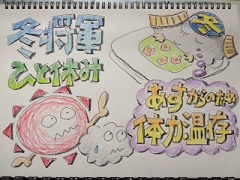 冬将軍
ひと休み
あすからのため
体力温存